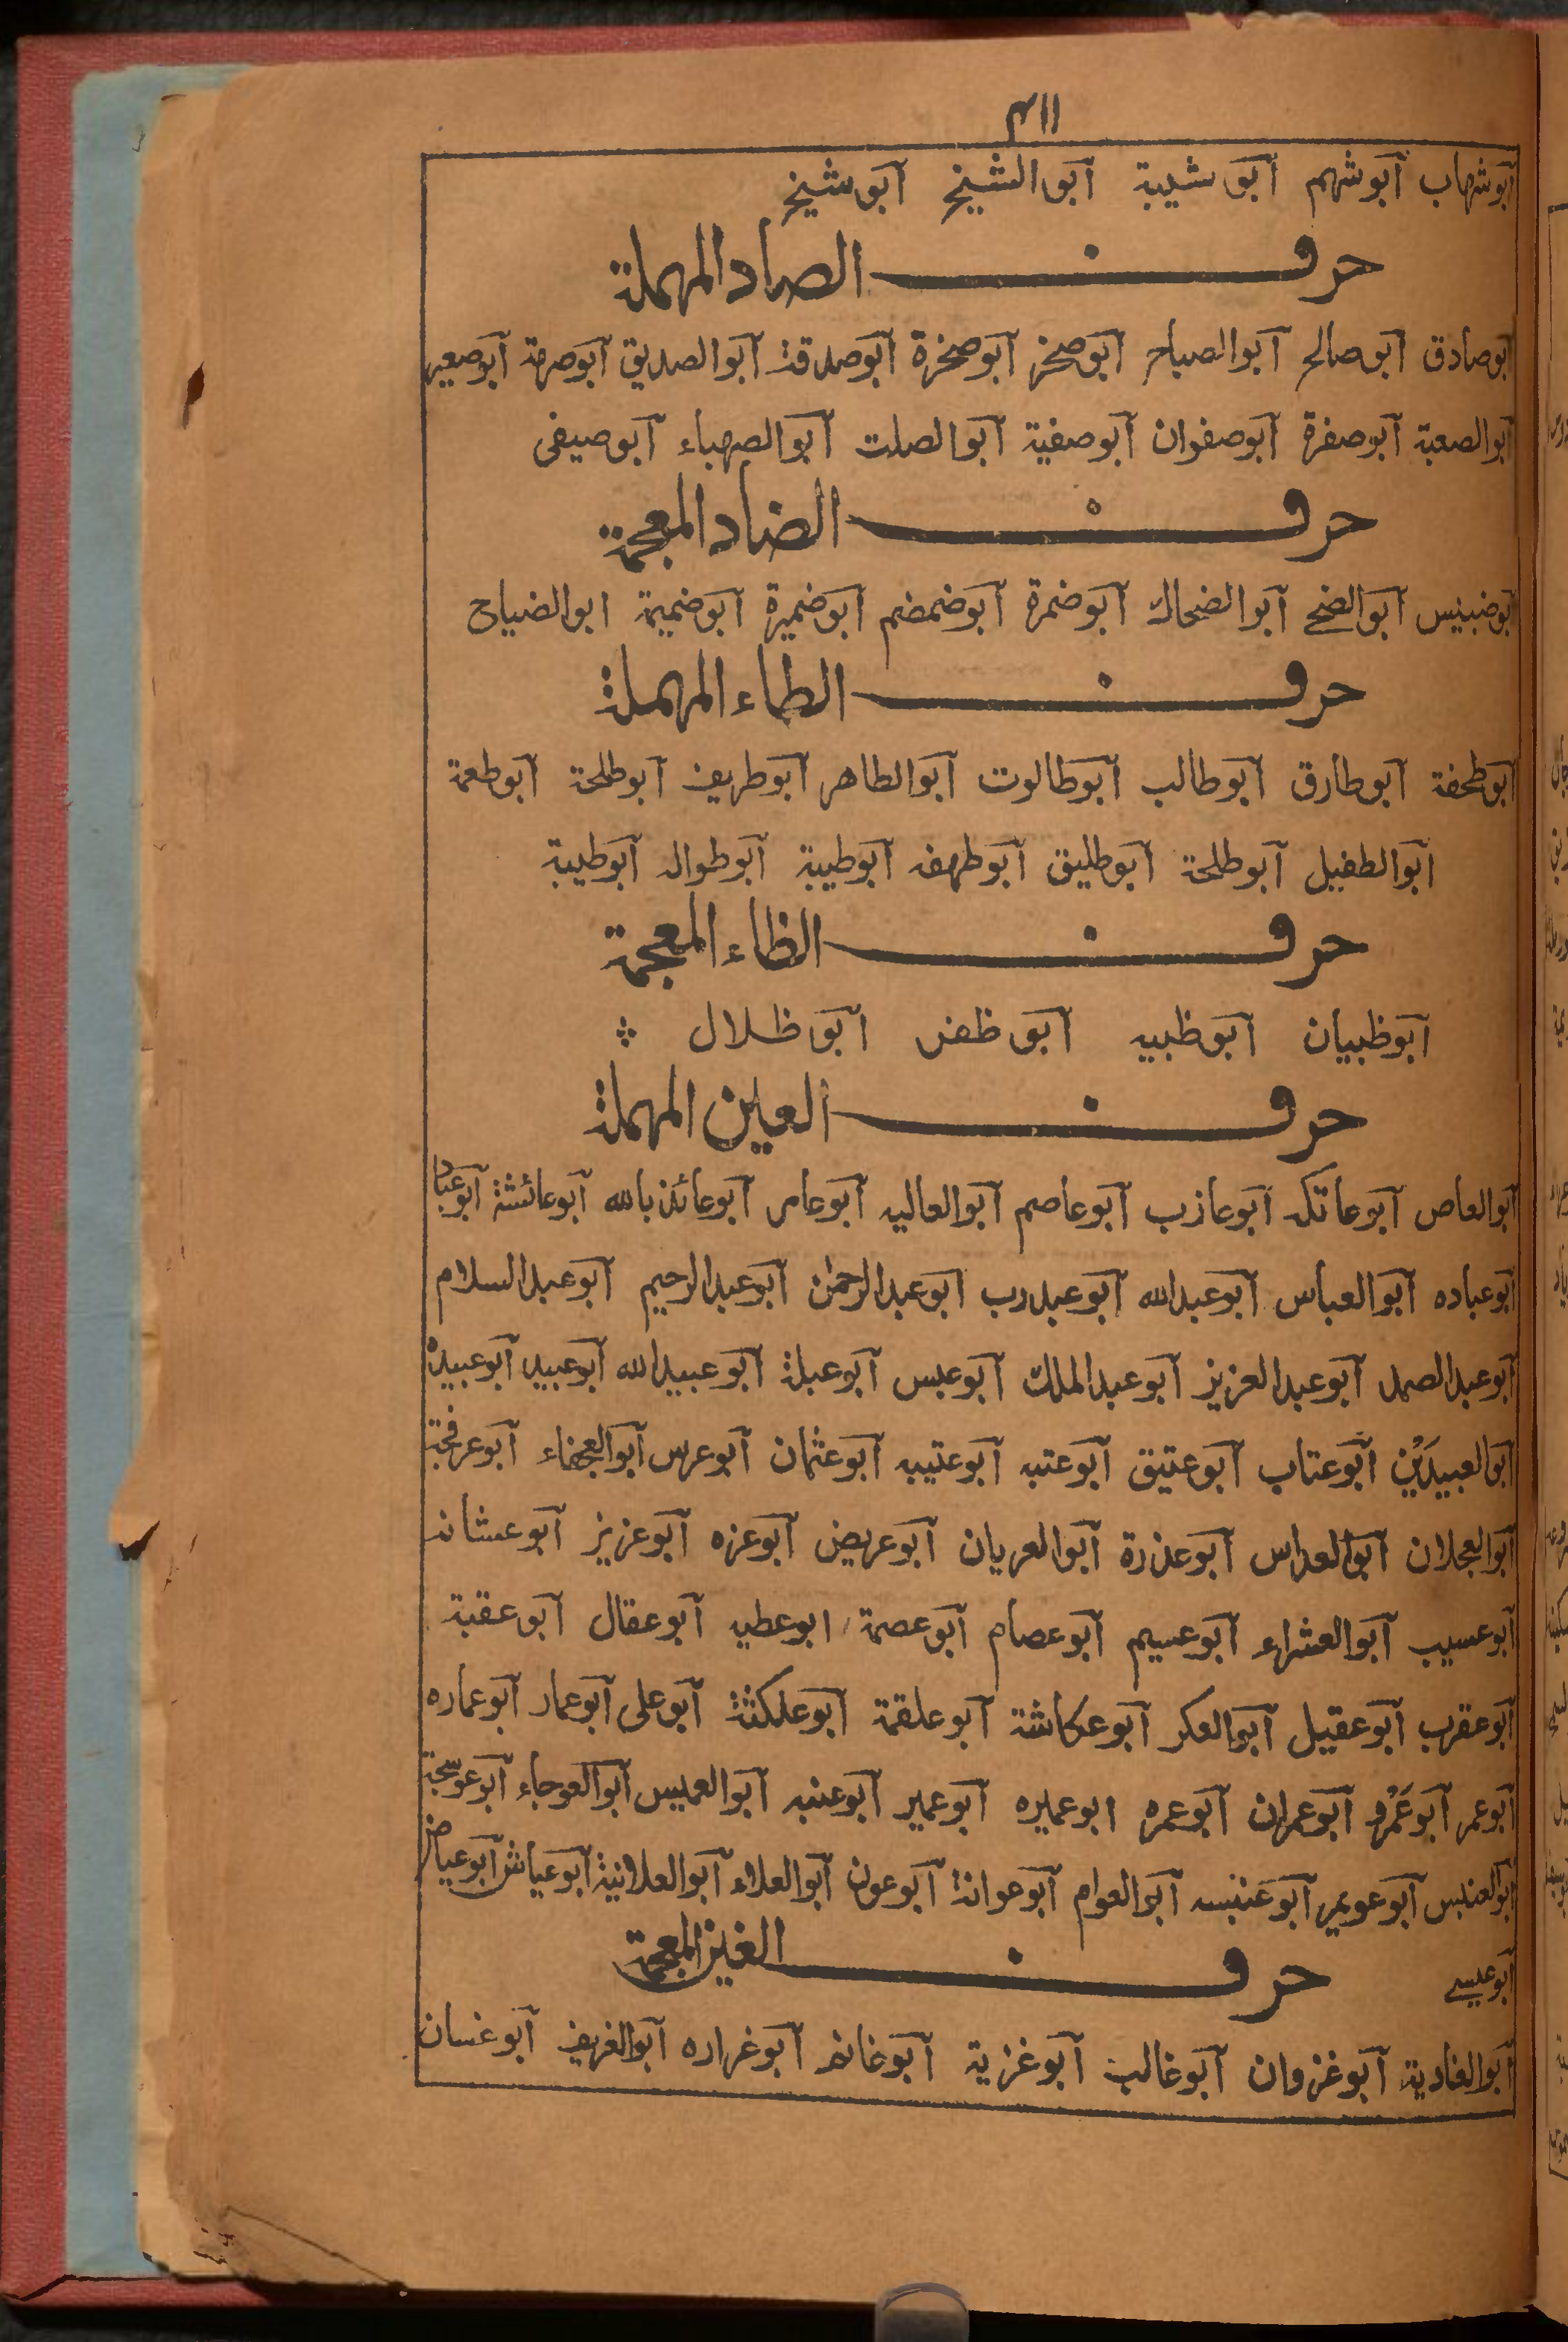 ٣١١
أبوشهاب أبوشهم أبو شيبة أبو الشيخ أبو شيخ
حرف الصاد المهملة
أبوصادق أبو صالح أبوالصباح أبوصخر أبوصخرة أبوصدقة أبوالصديق أبوصرمة أبوصعير
أبوالصعبة أبوصفرة أبوصفوان أبوصفية أبوالصلت أبوالصهباء أبوصيفى
حرف الضاد المعجمة
أبوضبيس أبوالضحى أبوالضحاك أبوضمرة أبوضمضم أبوضميرة أبوضميمة ابوالضياح
حرف الطاء المهملة
أبوطخفة أبوطارق أبوطالب أبوطالوت أبوالطاهر أبوطريف أبوطلحة أبوطعمة
أبوالطفيل أبوطلحة أبوطليق أبوطهفه أبوطيبة أبوطواله أبوطيبة
حرف الظاء المعجمة
أبوظبيان أبوظبيه أبو ظفر أبو ظلال
حرف العين المهملة
أبوالعاص أبوعاتكه أبوعازب أبوعاصم أبوالعاليه أبوعامر أبوعائذبالله أبوعائشة أبوعباد
أبوعباده أبوالعباس أبوعبدالله أبوعبدرب أبوعبدالرحمن أبوعبدالرحيم أبوعبدالسلام
أبوعبدالصمد أبوعبدالعزيز أبوعبدالملك أبوعبس أبوعبلة أبوعبيدالله أبوعبيد أبوعبيدة
أبوالعبيدَيْن أبوعتاب أبوعتيق أبوعتبه أبوعتيبه أبوعثمان أبوعرس أبوالعجفاء أبوعرفجة
أبوالعجلان أبوالعداس أبوعذرة أبوالعريان أبوعريض أبوعزه أبوعزيز أبوعشانه
أبوعسيب أبوالعشراء أبوعسيم أبوعصام أبوعصمة ابوعطيه أبوعقال أبوعقبة
أبوعقرب أبوعقيل أبوالعكر أبوعكاشة أبوعلقمة أبوعلكثة أبوعلى أبوعمار أبوعماره
أبوعمر أبوعَمْرو أبوعمران أبوعمره ابوعميره أبوعمير أبوعنبه أبوالعميس أبوالعوجاء أبوعوسجة
أبوالعنبس أبوعويمر أبوعنبسه أبوالعوام أبوعوانة أبوعون أبوالعلاء أبوالعلانية أبوعياش أبوعياض
أبوعيسے
حرف الغين المعجمة
أبوالغادية أبوغزوان أبوغالب أبوغزية أبوغانم أبوغراره أبوالغريف أبوغسان